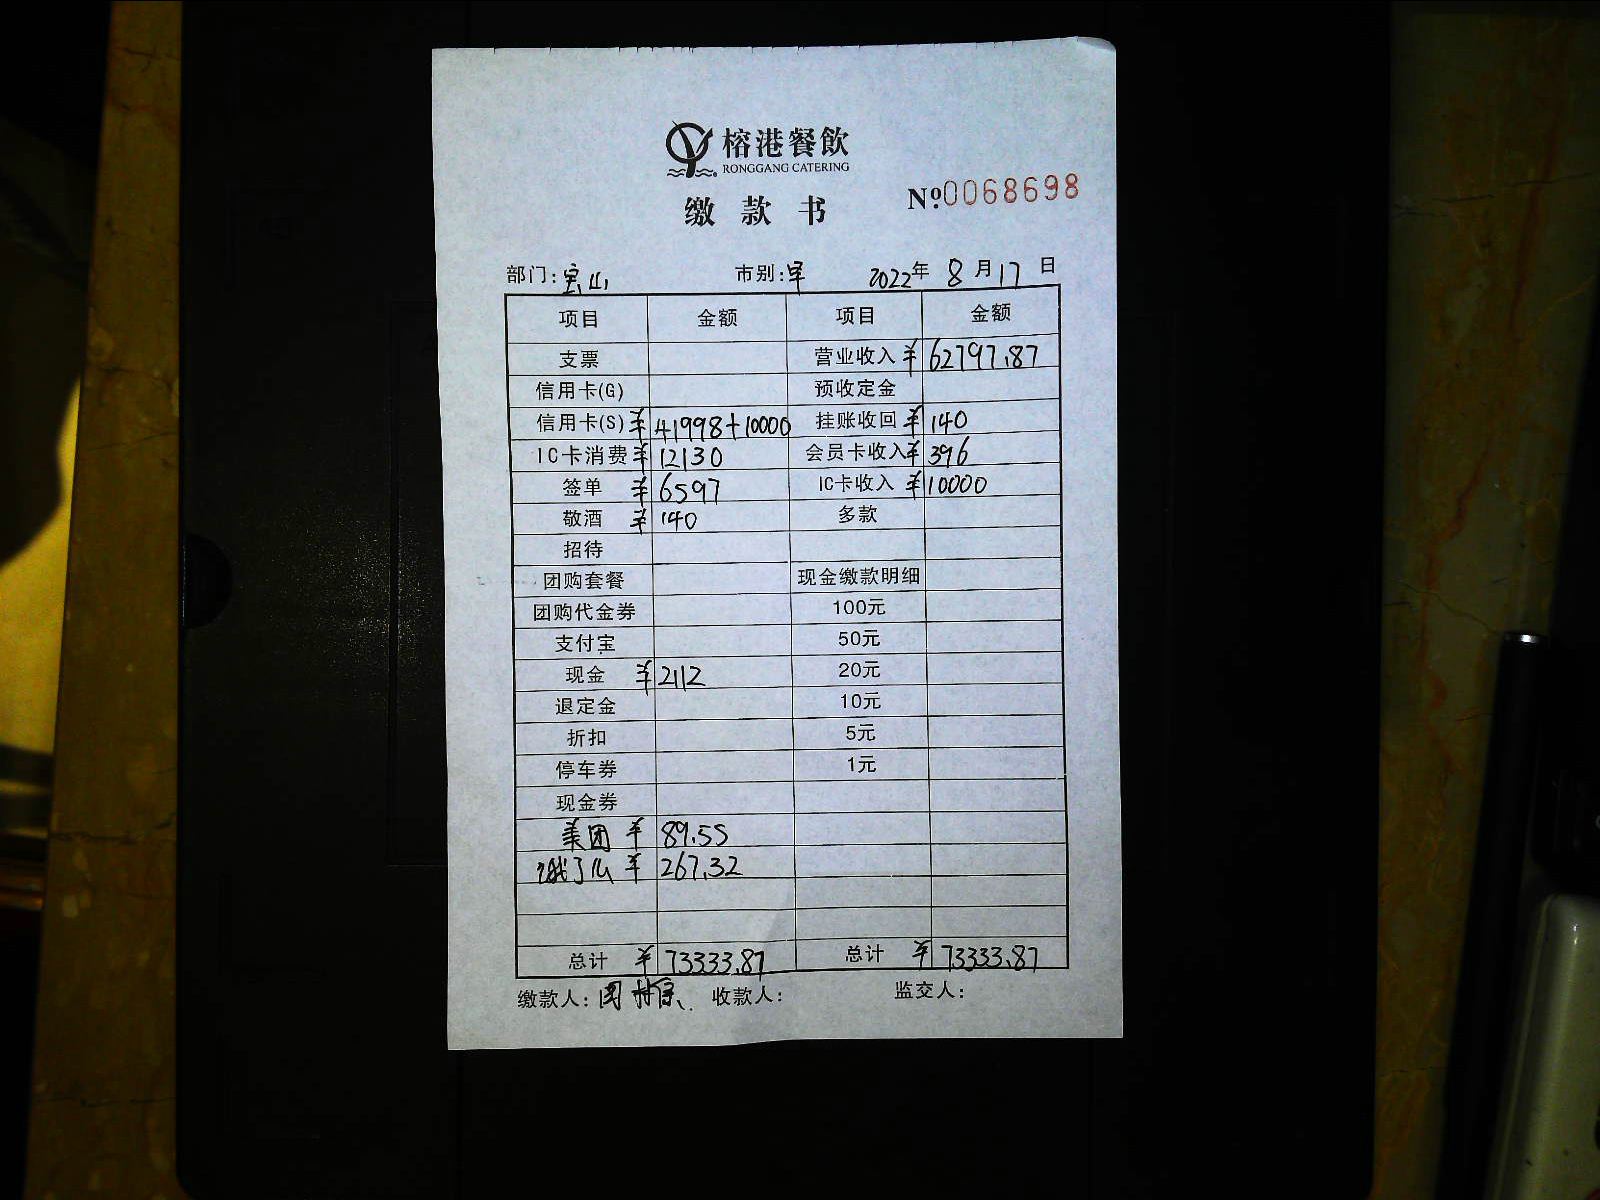 榕港餐飲
RONGGANG CATERING
缴款书 №0068698
部门:宝山 市别:早 2022年8月17日
项目 金额 项目 金额
支票 营业收入 ¥62797.87
信用卡(G) 预收定金
信用卡(S) ¥41998+10000 挂账收回 ¥140
IC卡消费 ¥12130 会员卡收入 ¥396
签单 ¥6597 IC卡收入 ¥10000
敬酒 ¥140 多款
招待
团购套餐 现金缴款明细
团购代金券 100元
支付宝 50元
现金 ¥2112 20元
退定金 10元
折扣 5元
停车券 1元
现金券
美团 ¥89.55
饿了么 ¥267.32
总计 ¥73333.87 总计 ¥73333.87
缴款人: 收款人: 监交人: